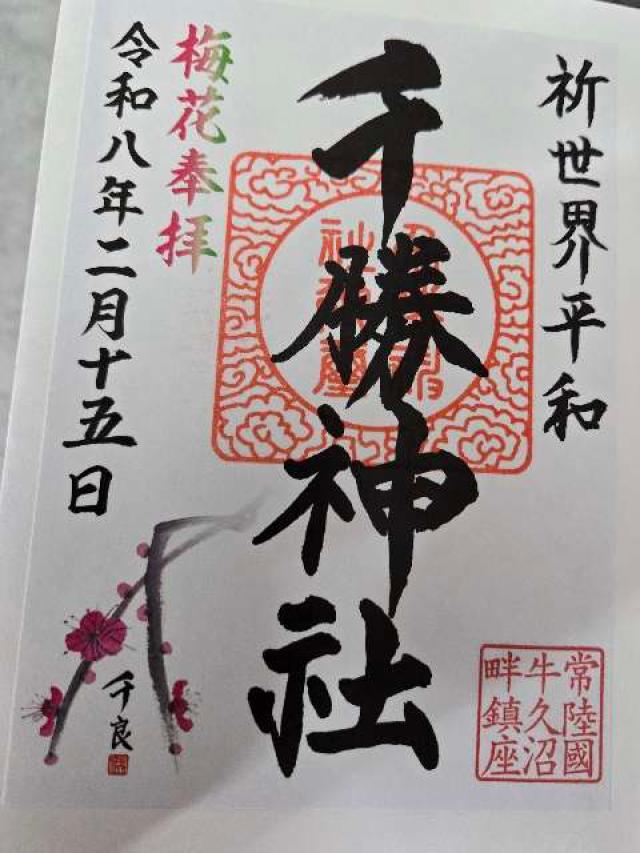 祈世界平和
千勝神社
梅花奉拝
令和八年二月十五日
千良
常陸國
牛久沼
畔鎮座